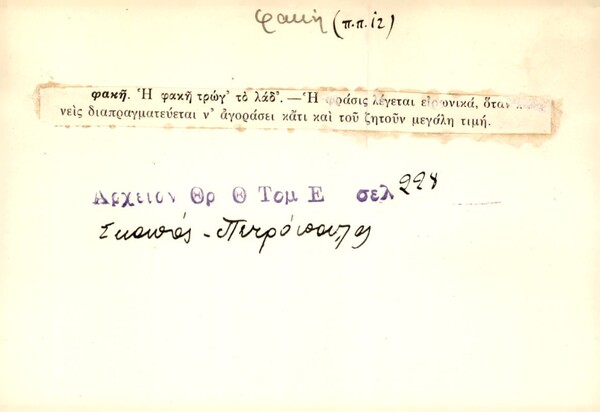 φακή (π.π. 12)
φακῆ. Ἡ φακῆ τρώγ' τὸ λάδ'. — Ἡ φράσις λέγεται εἰρωνικά, ὅταν
νεὶς διαπραγματεύεται ν' ἀγοράσει κἄτι καὶ τοῦ ζητοῦν μεγάλη τιμή.
Αρχειον Θρ Θ Τομ Ε σελ 228
Σκοπός - Πετρόπουλος